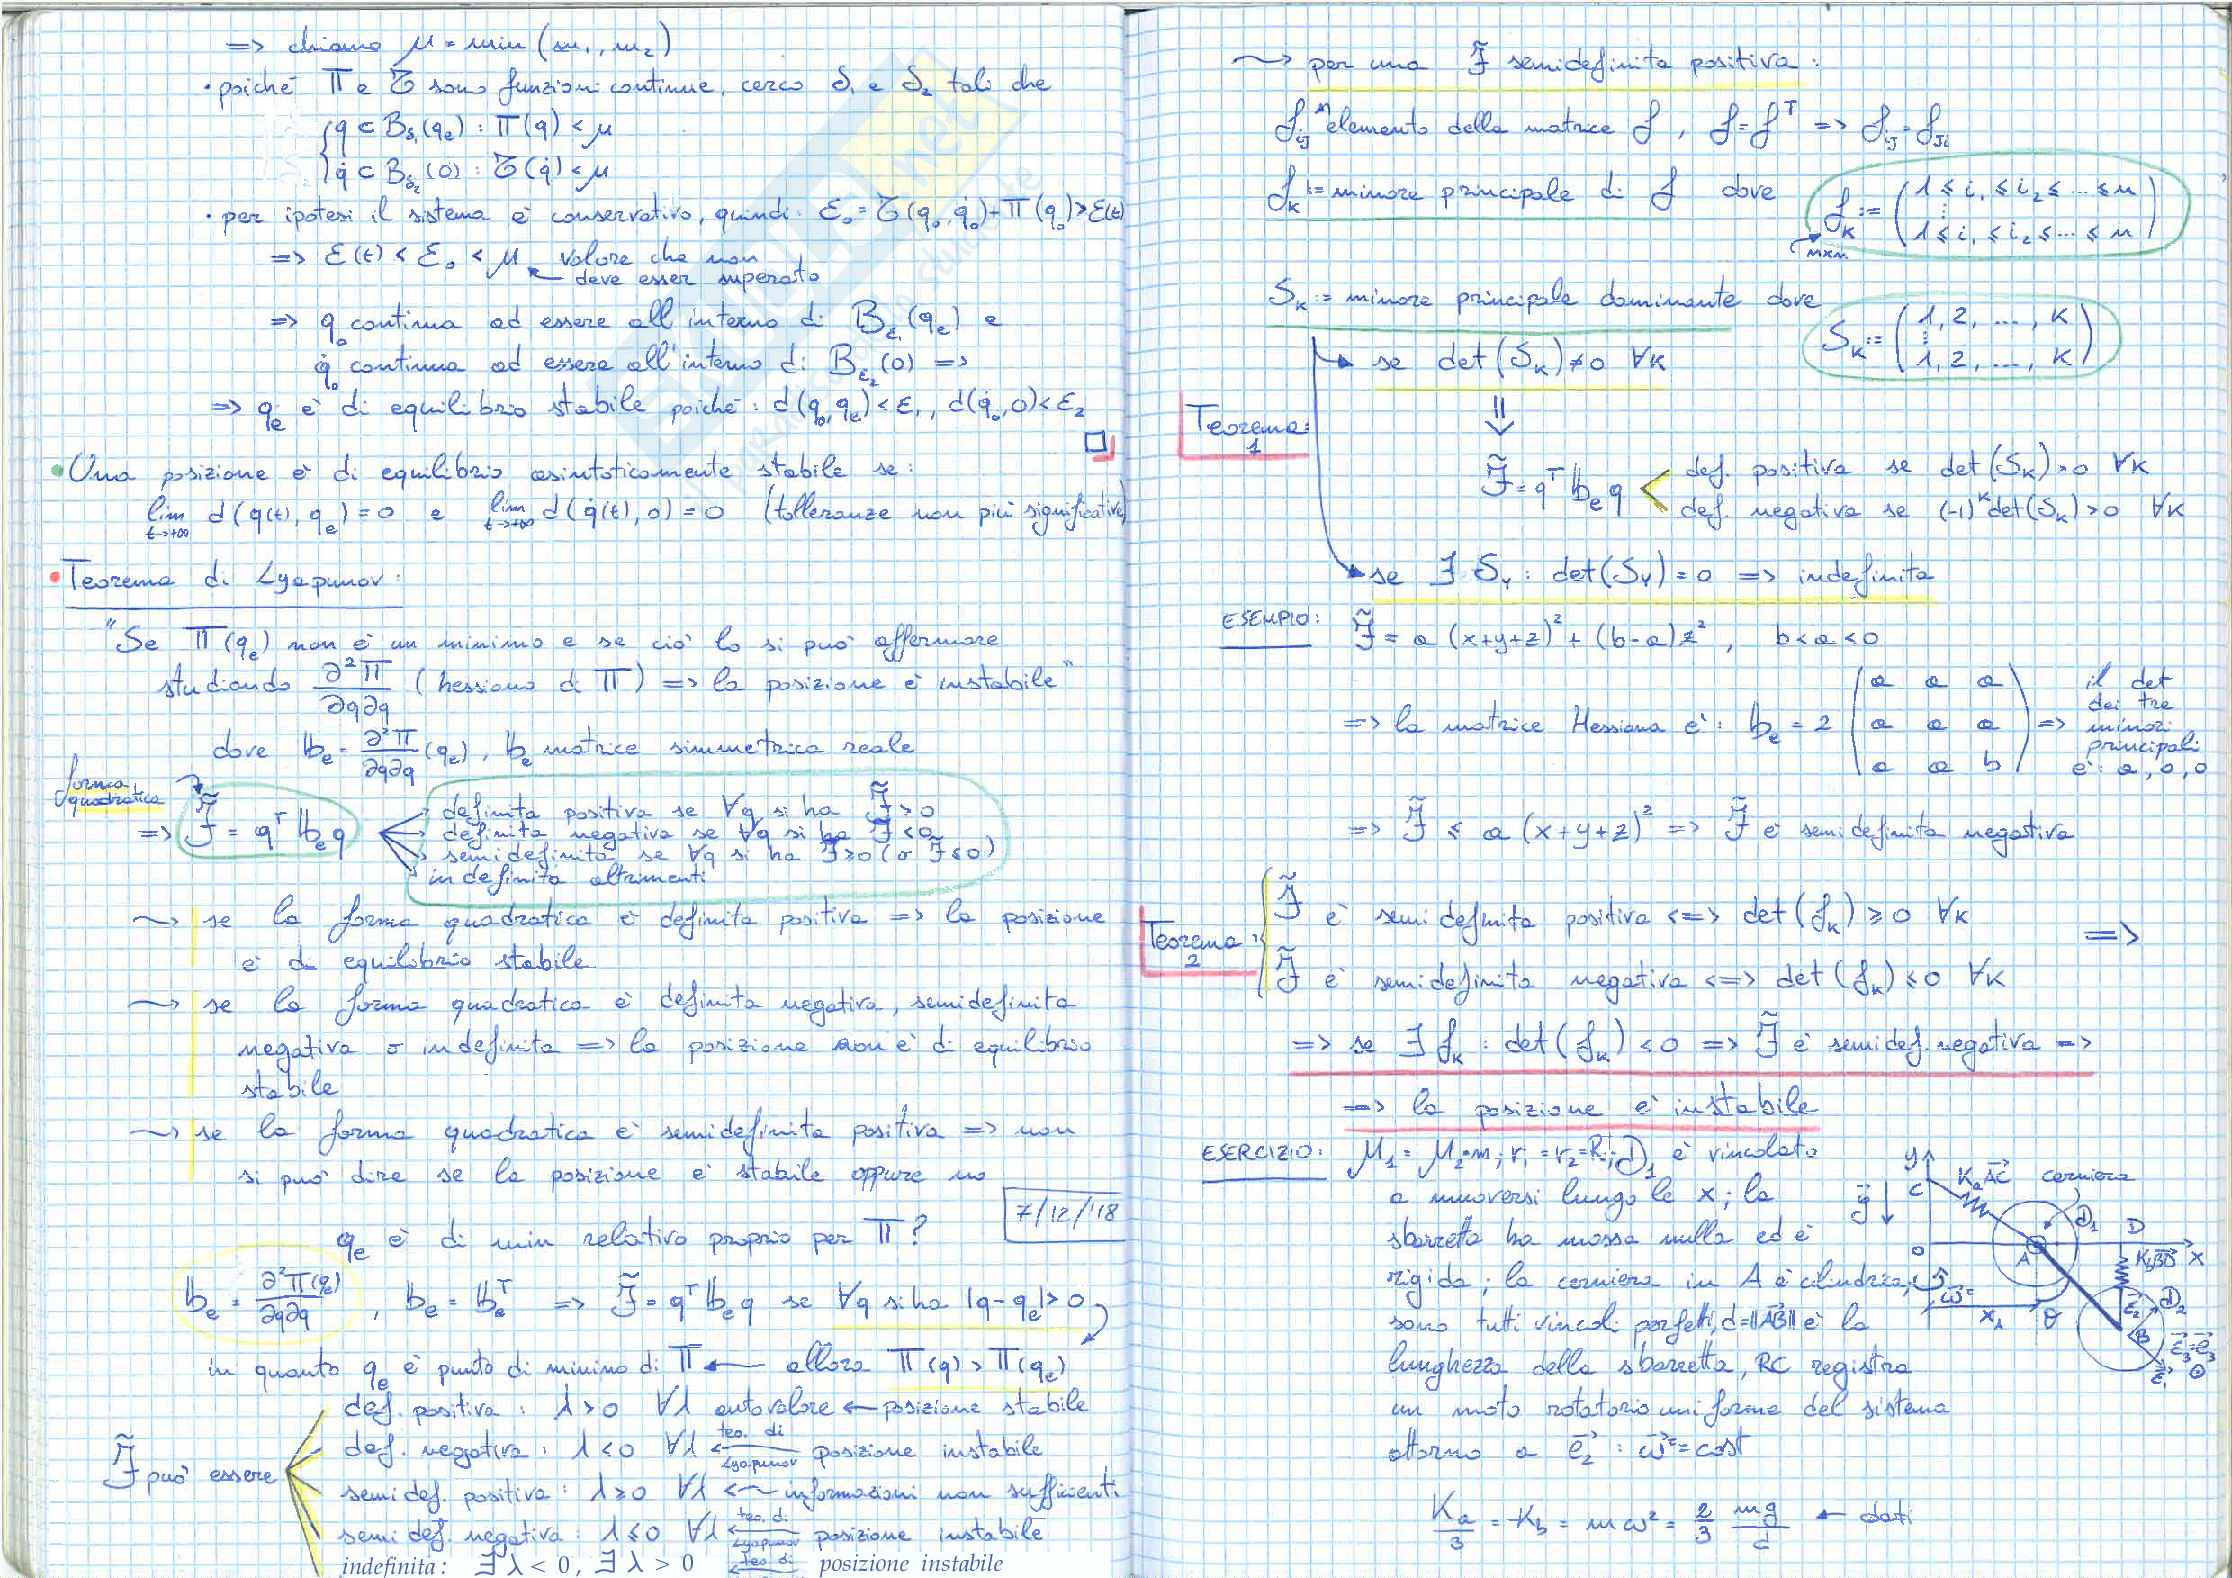 => chiamo μ = min (m₁, m₂)
• poiché Π e 𝒯 sono funzioni continue, cerco δ₁ e δ₂ tali che
{ q ⊂ B_δ₁(q_e) : Π(q) < μ
q̇ ⊂ B_δ₂(0) : 𝒯(q̇) < μ
• per ipotesi il sistema è conservativo, quindi: ε₀ = 𝒯(q₀, q̇₀) + Π(q₀) > ε(t)
=> ε(t) < ε₀ < μ ← valore che non
deve esser superato
=> q₀ continua ad essere all'interno di B_ε₁(q_e) e
q̇₀ continua ad essere all'interno di B_ε₂(0) =>
=> q_e è di equilibrio stabile poiché: d(q₀, q_e) < ε₁, d(q̇₀, 0) < ε₂
□
• Una posizione è di equilibrio asintoticamente stabile se:
lim t→+∞ d(q(t), q_e) = 0 e lim t→+∞ d(q̇(t), 0) = 0 (tolleranze non più significative)
• Teorema di Lyapunov:
"Se Π(q_e) non è un minimo e se ciò lo si può affermare
studiando ∂²Π/∂q∂q (hessiano di Π) => la posizione è instabile"
dove b_e = ∂²Π/∂q∂q (q_e), b_e matrice simmetrica reale
forma quadratica
=> J̃ = qᵀ b_e q
definita positiva se ∀q si ha J̃ > 0
definita negativa se ∀q si ha J̃ < 0
semidefinita se ∀q si ha J̃ ≥ 0 (o J̃ ≤ 0)
indefinita altrimenti
~> se la forma quadratica è definita positiva => la posizione
è di equilibrio stabile
~> se la forma quadratica è definita negativa, semidefinita
negativa o indefinita => la posizione non è di equilibrio
stabile
~> se la forma quadratica è semidefinita positiva => non
si può dire se la posizione è stabile oppure no
7/12/'18
q_e è di min relativo proprio per Π?
b_e = ∂²Π(q_e)/∂q∂q, b_e = b_eᵀ => J̃ = qᵀ b_e q se ∀q si ha |q - q_e| > 0
in quanto q_e è punto di minimo di Π ← allora Π(q) > Π(q_e)
J̃ può essere
def. positiva : λ > 0 ∀λ autovalore ← posizione stabile
def. negativa : λ < 0 ∀λ ← teo. di Lyapunov posizione instabile
semidef. positiva : λ ≥ 0 ∀λ ← informazioni non sufficienti
semidef. negativa : λ ≤ 0 ∀λ ← teo. di Lyapunov posizione instabile
indefinita : ∃ λ < 0, ∃ λ > 0 ← teo di posizione instabile
~> per una J̃ semidefinita positiva :
f_ij elemento della matrice f, f = fᵀ => f_ij = f_ji
f_K := minore principale di f dove
f_K := (1 ≤ i₁ ≤ i₂ ≤ ... ≤ n
⋮
1 ≤ i₁ ≤ i₂ ≤ ... ≤ n)
mxm
S_K := minore principale dominante dove
S_K := (1, 2, ..., K
⋮
1, 2, ..., K)
se det(S_K) ≠ 0 ∀K
Teorema 1:
J̃ = qᵀ b_e q
def. positiva se det(S_K) > 0 ∀K
def. negativa se (-1)^K det(S_K) > 0 ∀K
se ∃ S_K : det(S_K) = 0 => indefinita
ESEMPIO: J̃ = a (x+y+z)² + (b-a)z², b < a < 0
=> la matrice Hessiana è : b_e = 2 (a a a
a a a
a a b) =>
il det
dei tre
minori
principali
è: a, 0, 0
=> J̃ ≤ a (x+y+z)² => J̃ è semidefinita negativa
Teorema 2:
J̃ è semidefinita positiva <=> det(f_K) ≥ 0 ∀K =>
J̃ è semidefinita negativa <=> det(f_K) ≤ 0 ∀K
=> se ∃ f_K : det(f_K) < 0 => J̃ è semidef. negativa =>
=> la posizione è instabile
ESERCIZIO: M₁ = M₂ = m; r₁ = r₂ = R; D₁ è vincolato
a muoversi lungo le x; la
sbarretta ha massa nulla ed è
rigida; la cerniera in A è cilindrica;
sono tutti vincoli perfetti, d = ||AB|| è la
lunghezza della sbarretta, RC registra
un moto rotatorio uniforme del sistema
attorno a e₂ : ω = cost
K_a/3 = K_b = mω² = 2/3 mg/d ← dati
y
C
K_a AC
cerniera
g
D₁
D
O
A
K_b BD
x
ω
x_A
θ
e₂
D₂
B
e₁